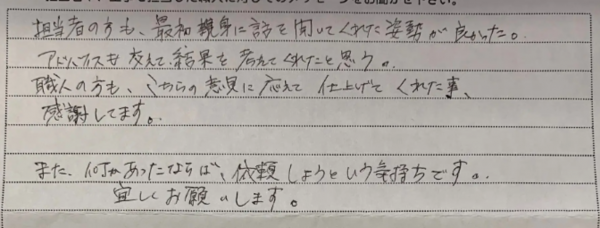 担当者の方も、最初親身に話を聞いてくれた姿勢が良かった。
アドバイスも交えて、結果を考えてくれたと思う。
職人の方も、こちらの意見に応えて 仕上げて くれた事、
感謝してます。
また、何かあったならば、依頼しようという気持ちです。
宜しくお願いします。